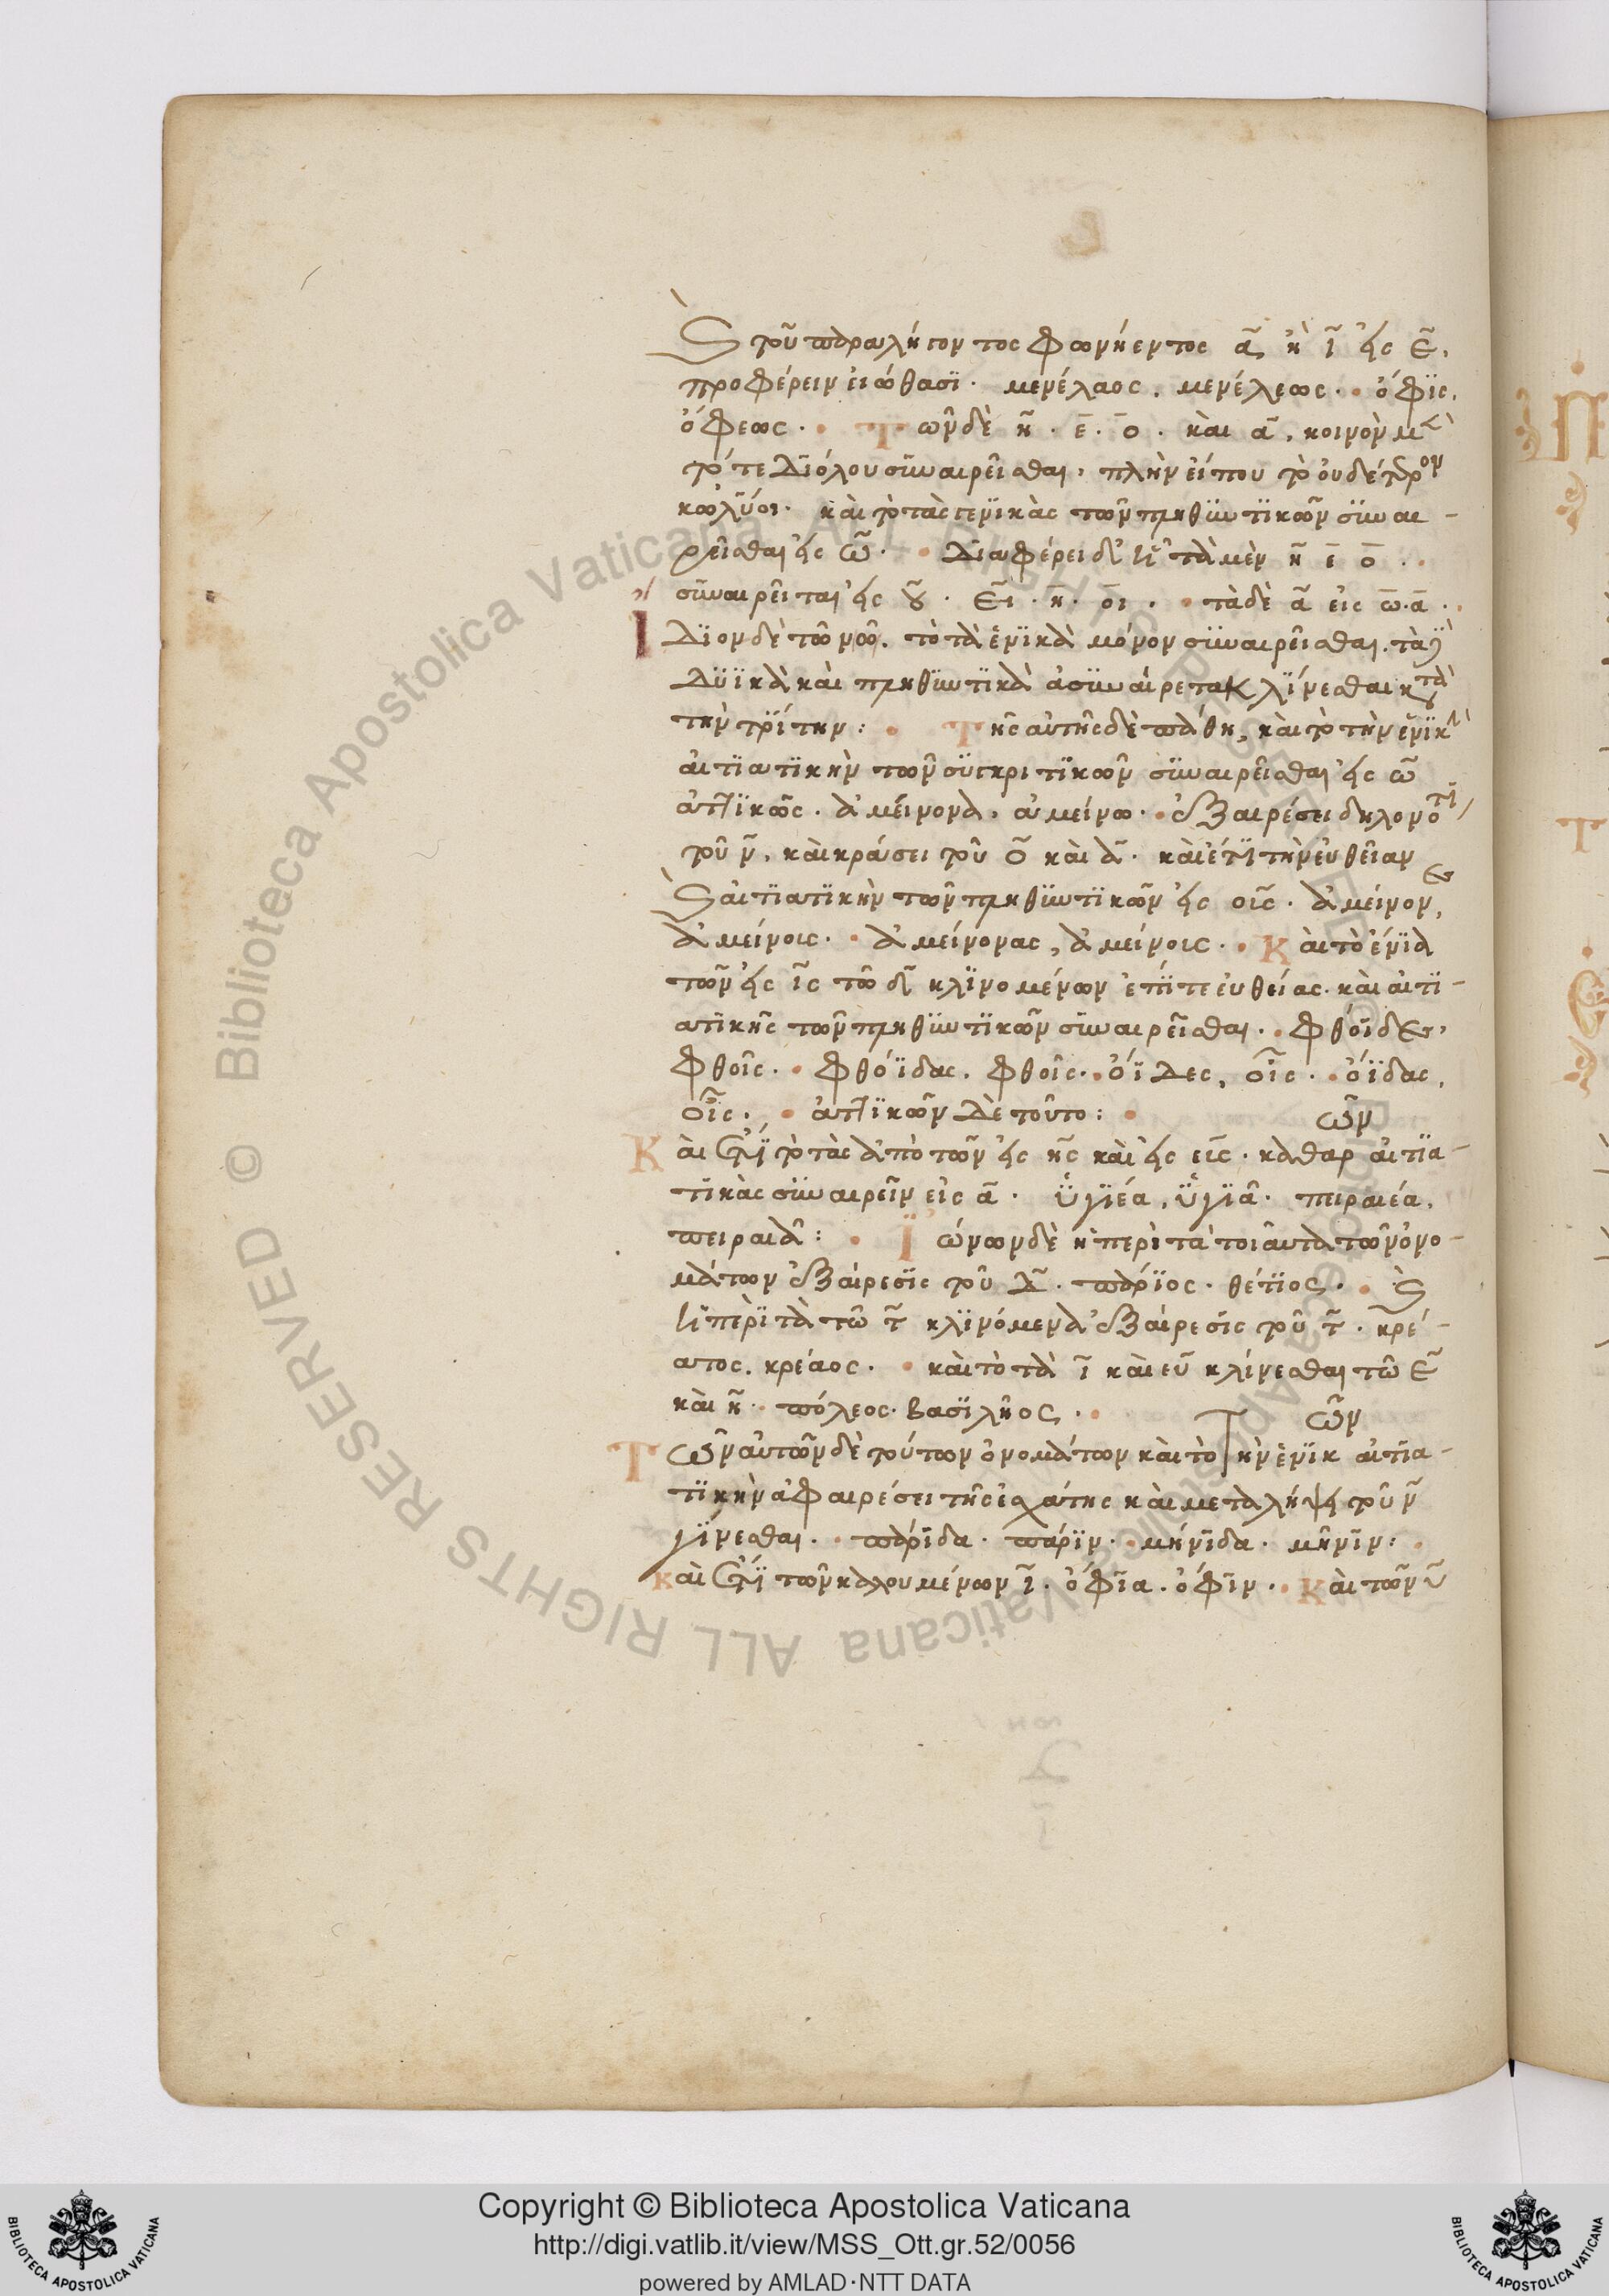 καὶ τοῦ παραλήγοντος φωνήεντος ᾱ, ἢ ῑ εἰς ε̄.
προφέρειν εἰώθασϊ. μενέλαος. μενέλεως. ὄφϊς.
ὄφεως. Τῶν δὲ η̄. ε̄. ο̄. καὶ ᾱ, κοινὸν μὲν
τό τε διόλου συναιρεῖσθαι, πλὴν εἴπου τὸ οὐδέτερον
κωλύοι. καὶ τὸ τὰς γενϊκὰς τῶν πληθυντϊκῶν συναι-
ρεῖσθαι εἰς ω̄. Διαφέρει δὲ ἧ τὰ μὲν η̄ ε̄ ο̄.
συναιρεῖται εἰς ου. ει. η. οι. τὰ δὲ ᾱ εἰς ω̄. ᾱ.
Ἴδϊον δὲ τῶν τὸ τὰ ἑνϊκὰ μόνον συναιρεῖσθαι. τὰ δὲ
δυϊκὰ καὶ πληθυντϊκὰ ἀσυναίρετα κλίνεσθαι κατὰ
τὴν τρίτην: Τῆς αὐτῆς δὲ πάθη, καὶ τὸ τὴν ἑνϊκὴν
αἰτϊατϊκὴν τῶν συγκριτϊκῶν συναιρεῖσθαι εἰς ω̄
ἀττϊκῶς. ἀμείνονα. ἀμείνω. ἐξαιρέσει δηλονότι
τοῦ ν̄, καὶ κράσει τοῦ ο̄ καὶ ᾱ. καὶ ἔτϊ τὴν εὐθεῖαν
καὶ αἰτϊατϊκὴν τῶν πληθυντϊκῶν εἰς οῑς. ἀμείνονες,
ἀμείνοις. ἀμείνονας, ἀμείνοις. Καὶ τὸ ἔνϊα
τῶν εἰς ῑς τῶ δ̄ κλϊνομένων ἐπί τε εὐθείας. καὶ αἰτϊ-
ατϊκῆς τῶν πληθυντϊκῶν συναιρεῖσθαι. φθόϊδες,
φθοῖς. φθόϊδας. φθοῖς. ὄϊδες, οἶς. ὄϊδας,
οἶς. ἀττϊκῶν δὲ τοῦτο: ῶν
Καὶ ἔτϊ τὸ τὰς ἀπὸ τῶν εἰς η̄ς καὶ εἰς εῑς. καθαρ αἰτϊα-
τϊκὰς συναιρεῖν εἰς ᾱ. ὑγϊέα, ὑγϊᾶ. πειραιέα,
πειραιᾶ: Ἰώνων δὲ ἡ περὶ τὰ τοιαῦτα τῶν ὀνο-
μάτων ἐξαίρεσϊς τοῦ δ̄. πάρϊος. θέτϊος. καὶ
ἡ περὶ τὰ τῶ τ̄ κλϊνόμενα ἐξαίρεσϊς τοῦ τ̄. κρέ-
ατος. κρέαος. καὶ τὸ τὰ ῑ καὶ εῡ κλίνεσθαι τῶ ε̄
καὶ η̄. πόλεος. βασϊλῆος. ῶν
Τῶν αὐτῶν δὲ τούτων ὀνομάτων καὶ τὸ τὴν ἑνϊκ αἰτϊα-
τϊκὴν ἀφαιρέσει τῆς ἐσχάτης καὶ μεταλήψει τοῦ ν̄
γίνεσθαι. πάρϊδα. πάρϊν. μήνϊδα. μῆνϊν:
Καὶ ἔτϊ τῶν καλουμένων ῑ. ὄφϊα. ὄφϊν. Καὶ τῶν ῡ
Copyright © Biblioteca Apostolica Vaticana
http://digi.vatlib.it/view/MSS_Ott.gr.52/0056
powered by AMLAD·NTT DATA